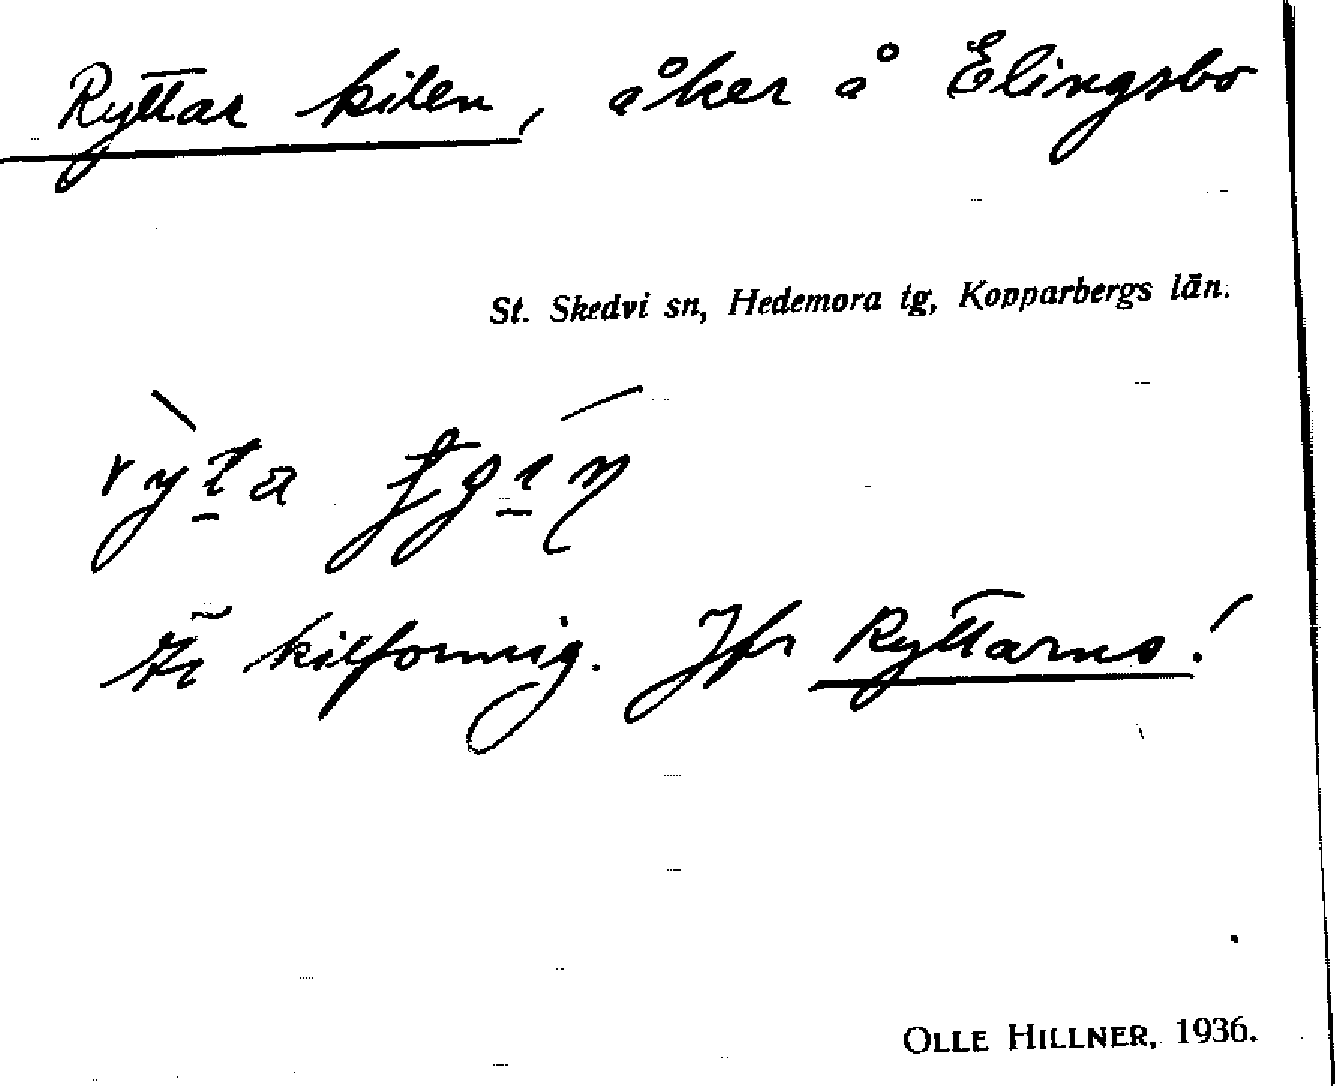 Ryttar kilen, åker å Elingsbo
St. Skedvi sn, Hedemora tg, Kopparbergs län.
Är kilformig. Jfr Ryttarns!
OLLE HILLNER, 1936.